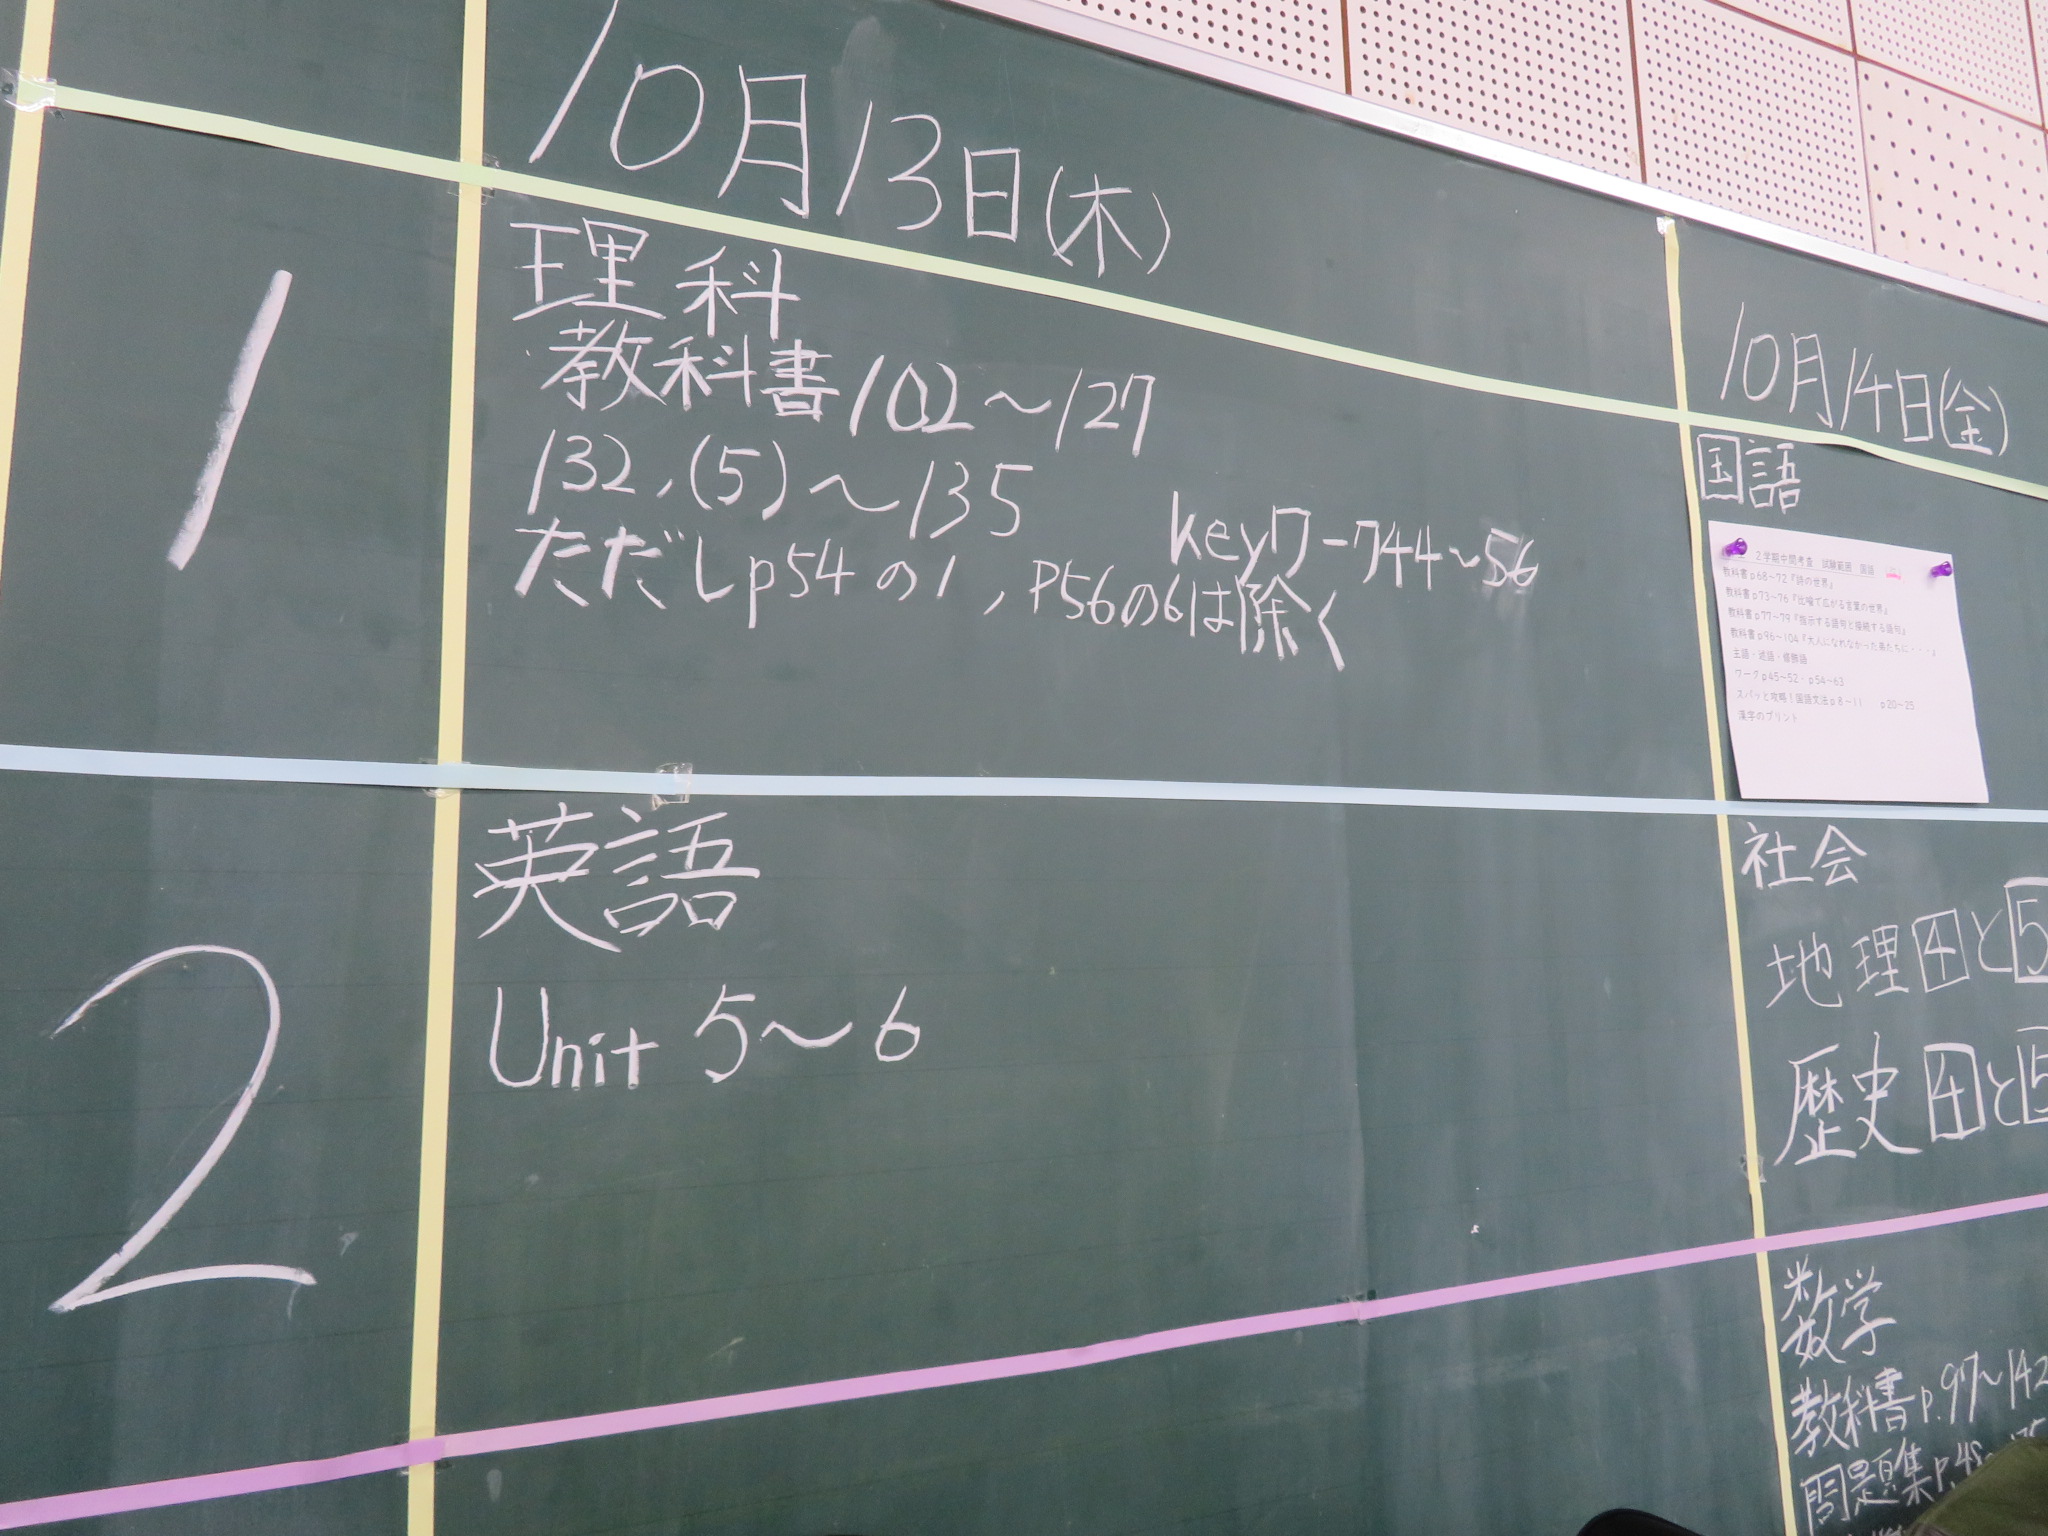 10月13日(木)
1
理科
教科書102～127
132,(5)～135
keyワーク44～56
ただしp54の1,P56の6は除く
2
英語
Unit 5～6
10月14日(金)
国語
2学期中間考査 試験範囲 国語
教科書p68～72『詩の世界』
教科書p73～76『比喩で広がる言葉の世界』
教科書p77～79『指示する語句と接続する語句』
教科書p96～104『大人になれなかった弟たちに・・・』
主語・述語・修飾語
ワークp45～52・p54～63
スパッと攻略!国語文法p8～11 p20～25
漢字のプリント
社会
地理4と5
歴史4と5
数学
教科書p.97～142
問題集P.48